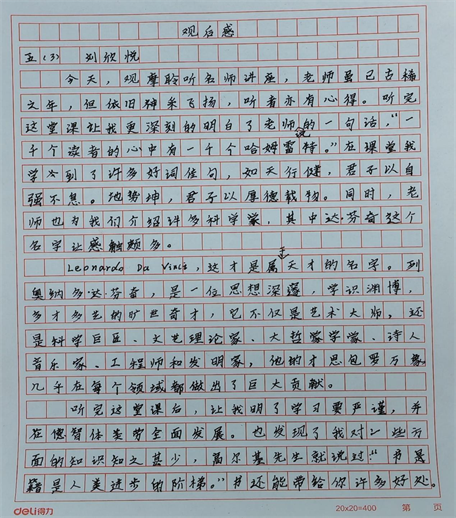 观后感
五(3) 刘欣悦
今天,观摩聆听名师讲座,老师虽已古稀
之年,但依旧神采飞扬,听者亦有心得。听完
这堂课让我更深刻的明白了老师的一句话,“一
千个读者的心中有一千个哈姆雷特。”在课堂我
学会到了许多好词佳句,如天行健,君子以自
强不息。地势坤,君子以厚德载物。同时,老
师也为我们介绍许多科学家,其中达·芬奇这个
名字让感触颇多。
Leonardo Da Vinci,这才是属于天才的名字。列
奥纳多·达·芬奇,是一位思想深邃,学识渊博,
多才多艺的旷世奇才,它不仅是艺术大师,还
是科学巨匠、文艺理论家、大哲学家、诗人
音乐家、工程师和发明家,他的才思包罗万象
几乎在每个领域都做出了巨大贡献。
听完这堂课后,让我明了学习要严谨,并
在德智体美劳全面发展。也发现了我对一些方
面的知识知之甚少,高尔基先生就说过“书
籍是人类进步的阶梯。”书还能带给你许多好处。
deli得力
20x20=400
第 页